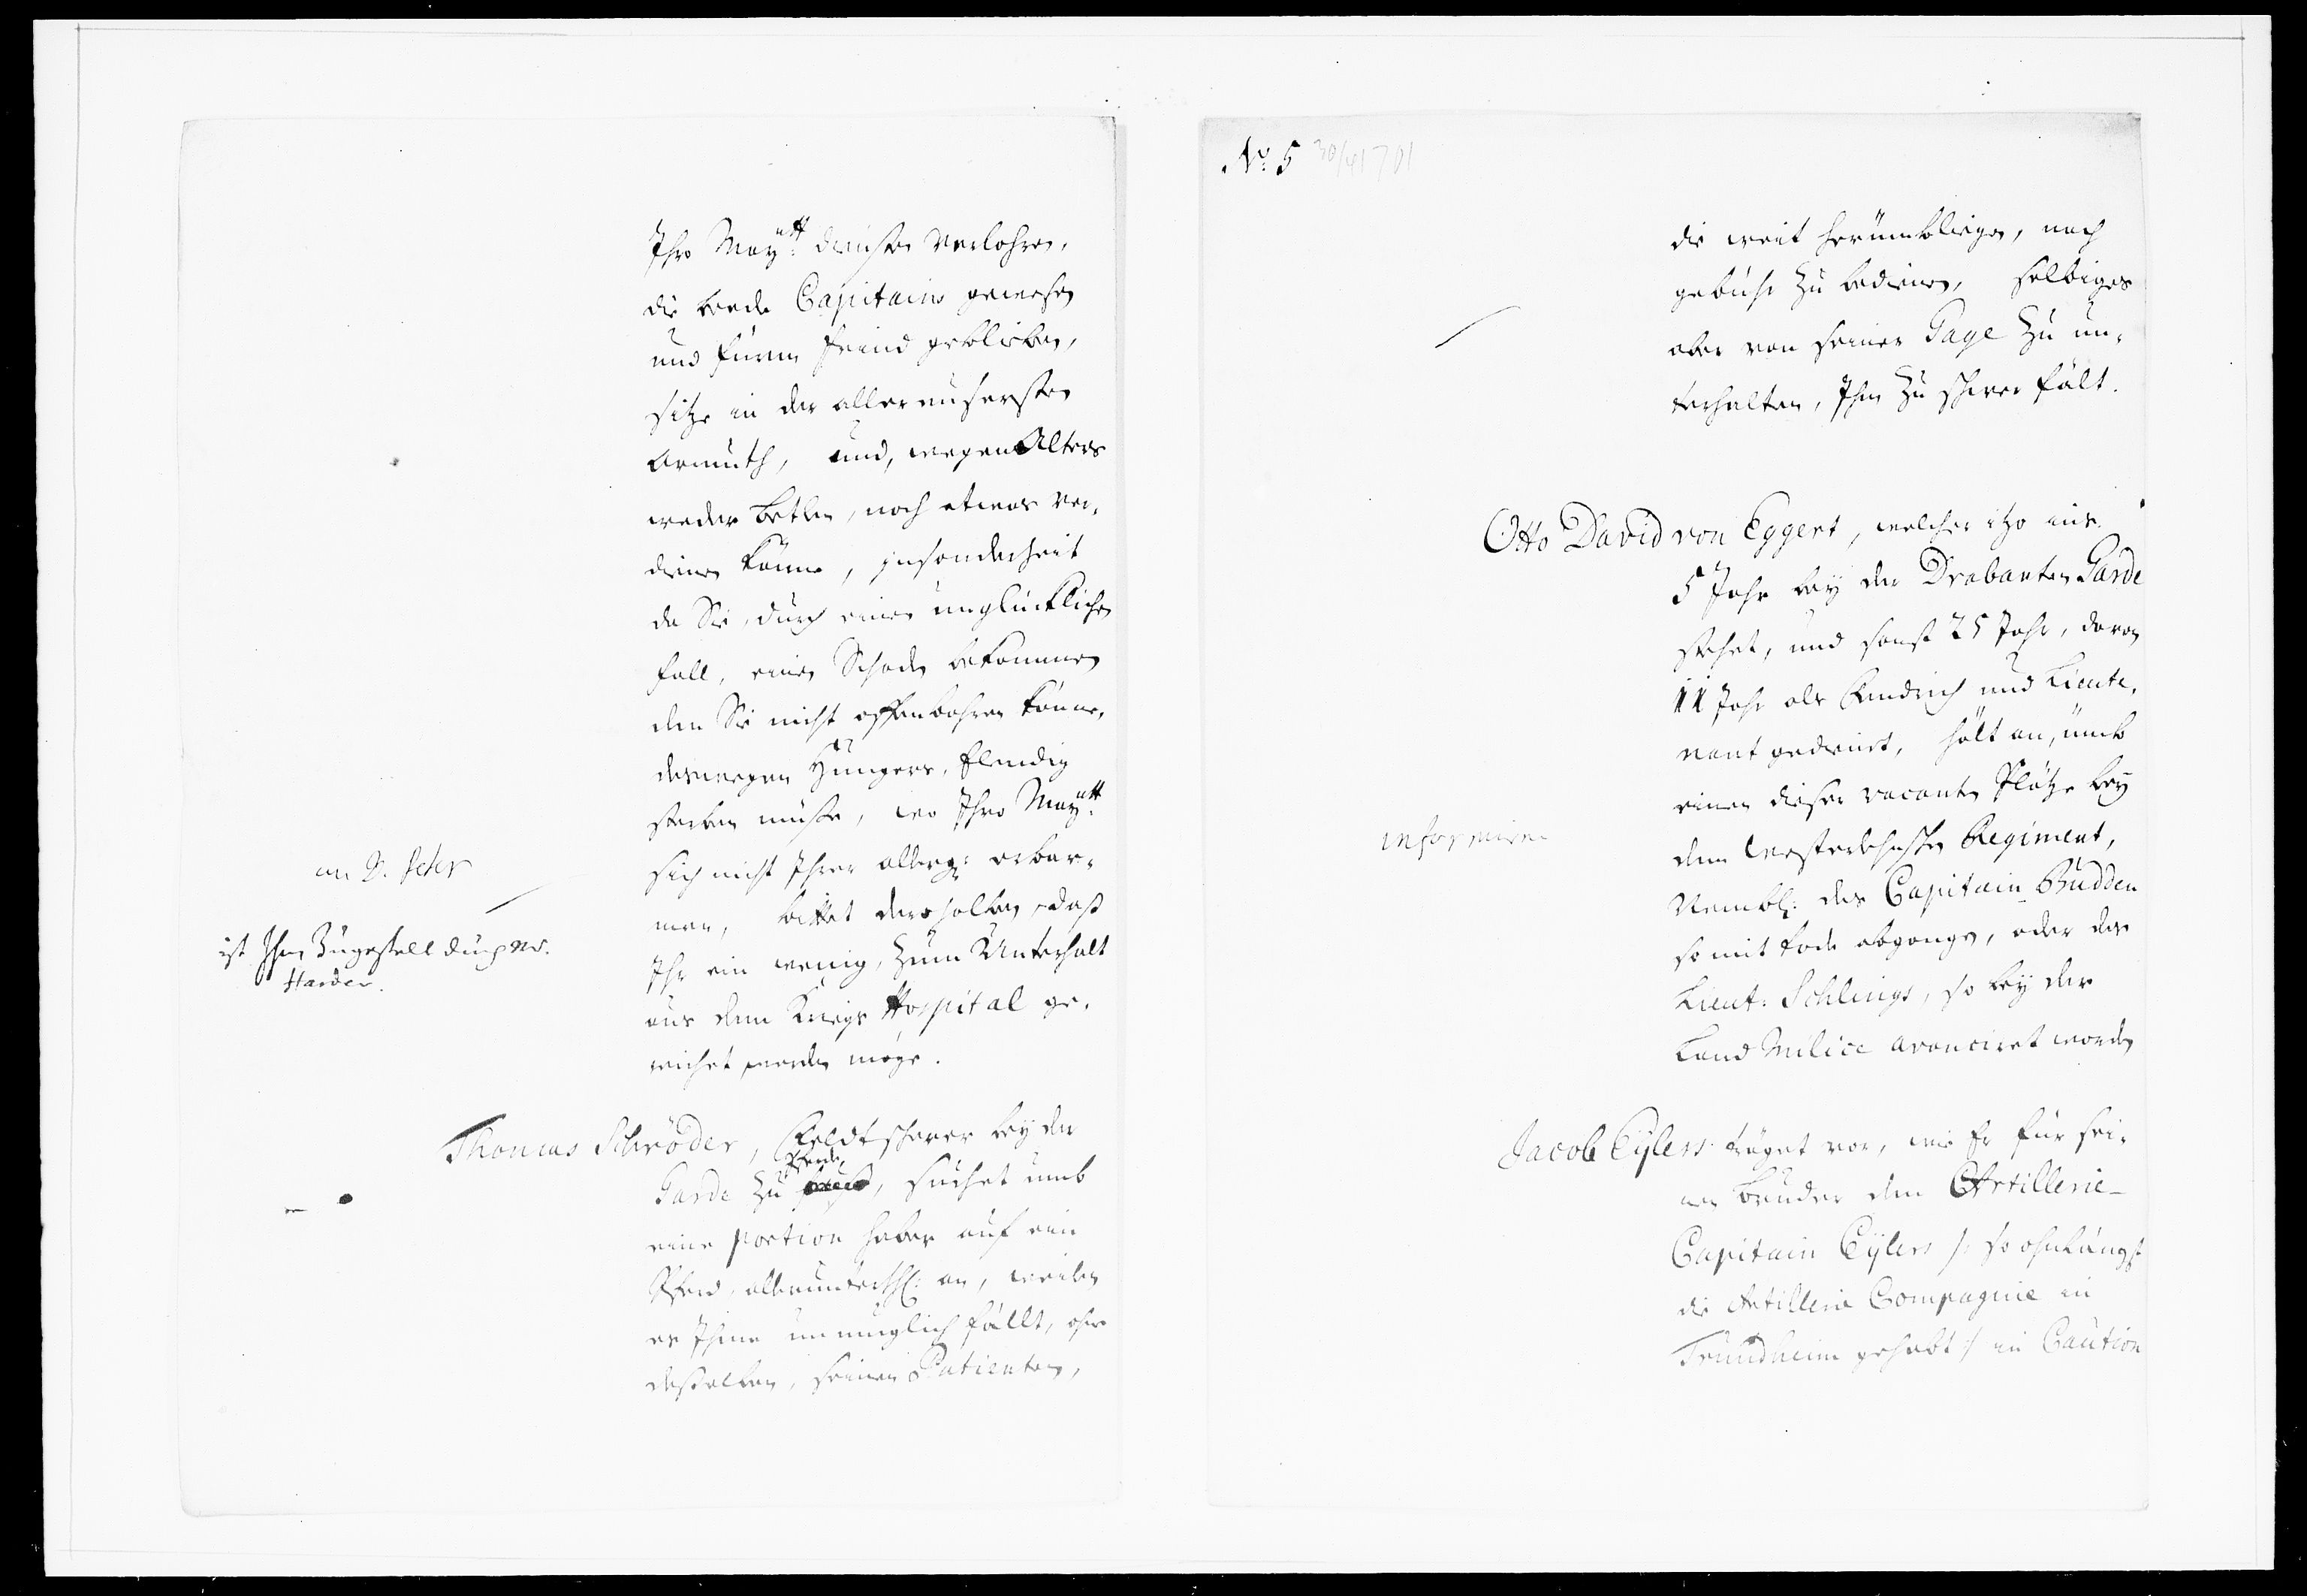 Ihro Maytt: diensten verlohren,
die beede Capitains gewesen
und fürm feind geblieben,
sitze in der allereusersten
Armuth, und, wegen Alters
weder betlen, noch etwas ver-
dienen könne, insonderheit
da Sie, durch einen unglücklichen
fall, einen Schaden bekommen
den Sie nicht offenbahren könne,
deswegen Hungers, Elendig
sterben müste, wo Ihro Maytt:
sich nicht Ihrer allerg: erbar-
men, bittet derohalben, daß
Ihr ein wenig, zum Unterhalt
aus dem Kriegs Hospital ge-
reichet werden möge.
an D.
ist Ihm Zugestelt durch Mr.
Harder.
Thomas Schröder, Feldtscherer bey der
Garde zu Pferde, suchet umb
eine portion haber auf ein
Pferd, allerunterth: an, weilen
es Ihme unmüglich fällt, ohne
deßelben, seinen Patienten,
No: 5 30/4 1701
die weit herumbliegen, nach
gebühr zu bedienen, selbiges
aber von seiner Gage zu un-
terhalten, Ihm zu schwer fält.
Otto David von Eggert, welcher itzo ins
5 Jahr bey der Drabanten Garde
stehet, und sonst 25 Jahr, davon
11 Jahr als Fendrich und Lieute-
nant gedienet, hält an, umb
einen dieser vacanten Plätze bey
dem Westerlehnschen Regiment,
Nembl: des Capitain Budden
so mit tode abgangen, oder des
Lieut: Schlings, so bey der
Land Milice avanciret worden
informiren
Jacob Eylers träget vor, wie Er für sei-
nen Bruder dem Artillerie-
Capitain Eylers /: so ohnlängst
die Artillerie Compagnie in
Trundheim gehabt :/ in Caution